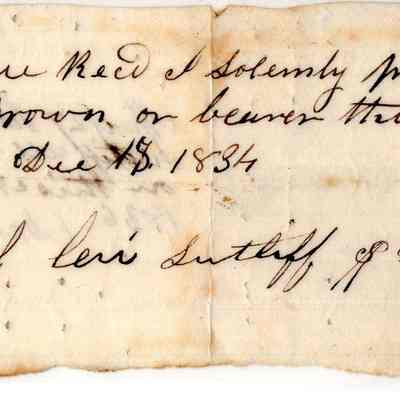 ue Recd I solemly p
rown or bearer th
Dec 13 1834
Levi Sutliff